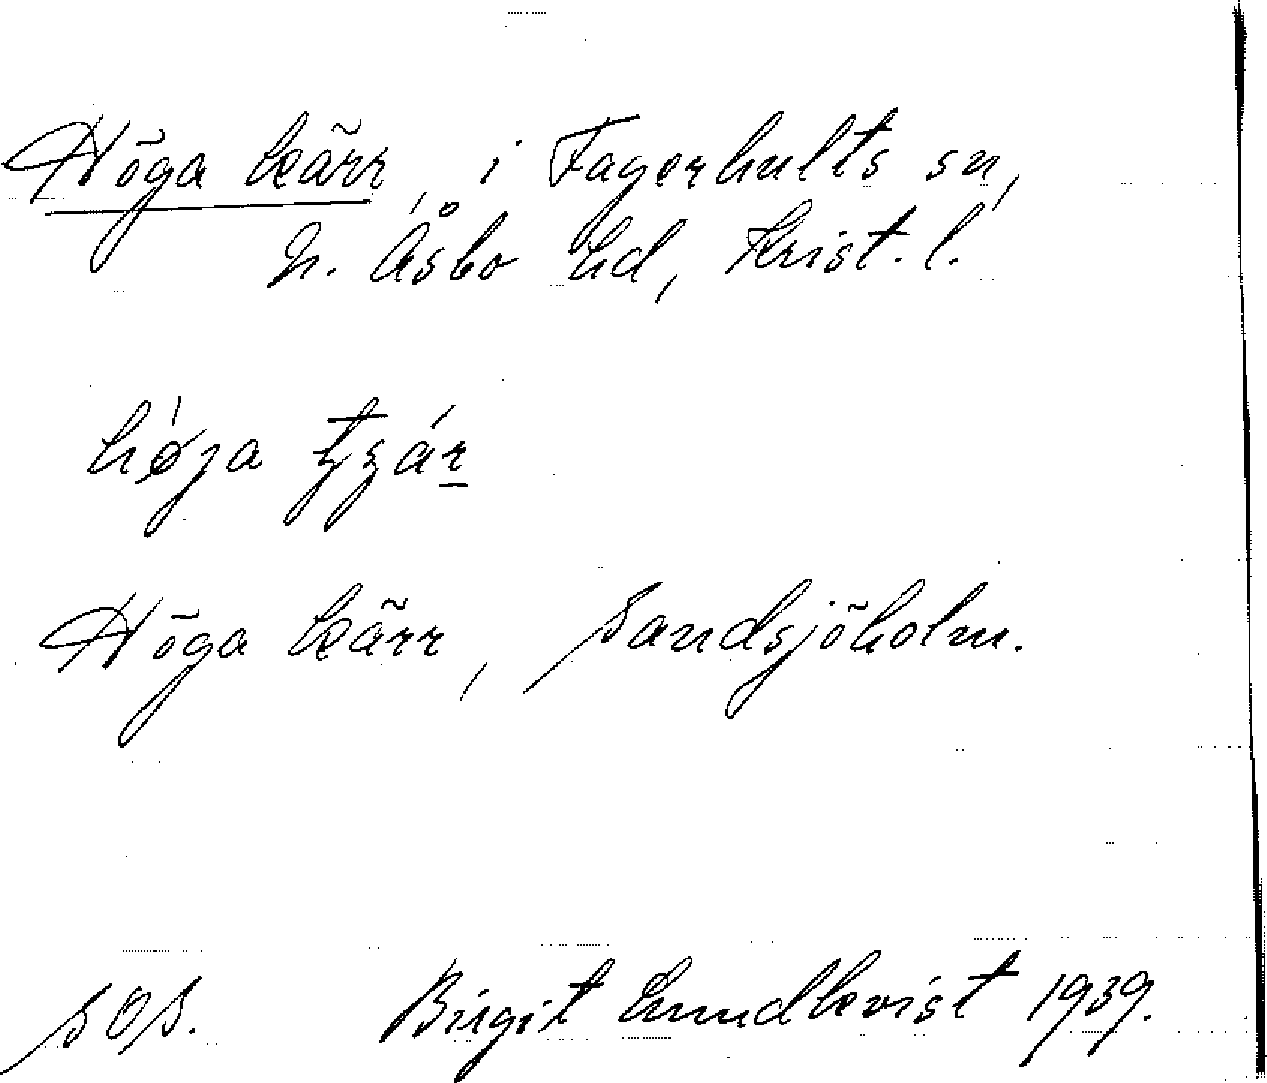 Höga kärr, i Fagerhults sn,
N. Åsbo hd, Krist. l.
Höga kärr, Sandsjöholm.
SOS. Birgit Lundkvist 1939.